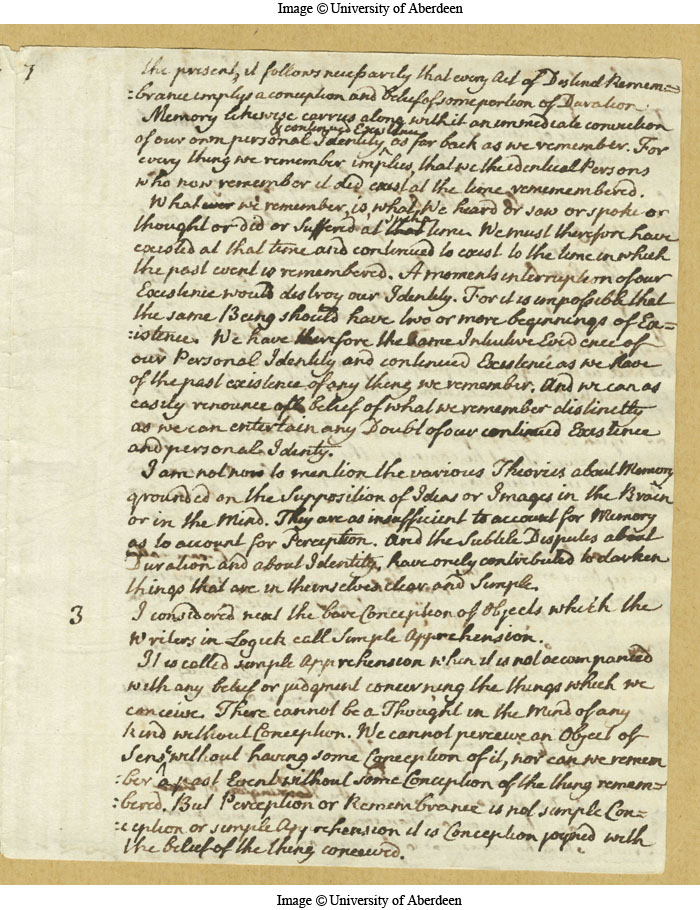 Image © University of Aberdeen
7
the present, it follows necessarily that every Act of Distinct Remem=
:brance implys a conception and belief of some portion of Duration.
Memory likewise carries along with it an immediate conviction
& continued Existence
of our own personal Identity, as far back as we remember. For
every thing we remember implies, that we the identical Persons
who now remember it did exist at the time rememembered.
What ever we remember, is, what We heard or saw or spoke or
thought or did or suffered, at that time. We must therefore have
existed at that time and continued to exist to the time in which
the past event is remembered. A moments interruption of our
Existence would distroy our Identity. For it is impossible that
the same Being should have two or more beginnings of Ex=
:istence. We have therefore the same Intuitive Evidence of
our Personal Identity and continued Existence as we have
of the past existence of any thing we remember. And we can as
easily renounce all belief of what we remember distinctly
as we can entertain any Doubt of our continued Existence
and personal Identy.
I am not now to mention the various Theories about Memory
grounded on the Supposition of Ideas or Images in the Brain
or in the Mind. They are as insufficient to account for Memory
as to account for Perception. And the Subtile Disputes about
Duration and about Identity, have onely contributed to darken
things that are in themselves clear and Simple.
3 I considered next the bare Conception of Objects which the
Writers in Logick call Simple Apprehension.
It is called simple Apprehension when it is not accompanied
with any belief or judgment concerning the things which we
conceive. There cannot be a Thought in the Mind of any
kind without Conception. We cannot perceive an Object of
Sense without having some Conception of it, nor can we remem
:ber a past Event without some Conception of the thing remem=
:bered. But Perception or Remembrance is not simple Con=
:ception or simple Apprehension it is Conception joyned with
the belief of the thing conceived.
Image © University of Aberdeen